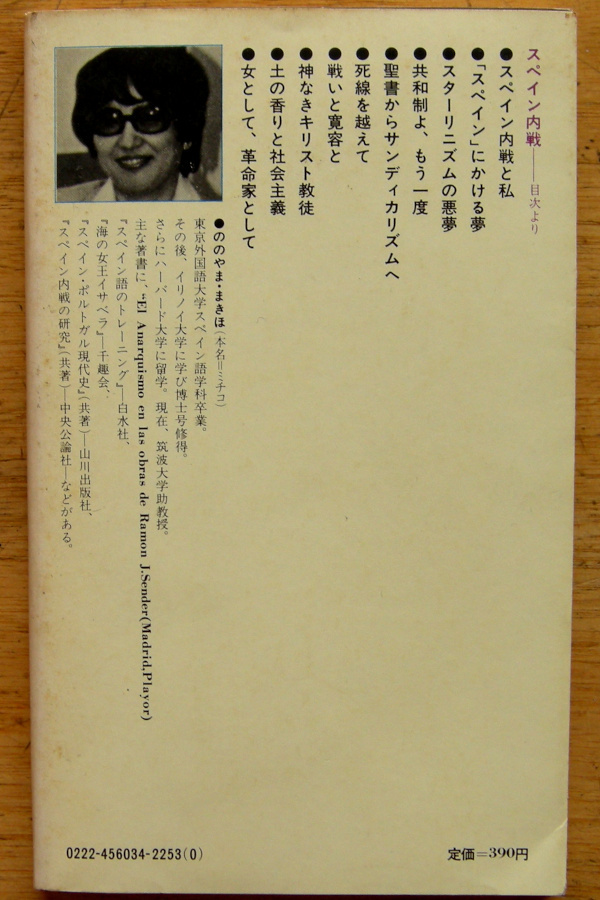 スペイン内戦──目次より
●スペイン内戦と私
●「スペイン」にかける夢
●スターリニズムの悪夢
●共和制よ、もう一度
●聖書からサンディカリズムへ
●死線を越えて
●戦いと寛容と
●神なきキリスト教徒
●土の香りと社会主義
●女として、革命家として
●ののやま・まきほ(本名=ミチコ)
東京外国語大学スペイン語学科卒業。
その後、イリノイ大学に学び博士号修得。
さらにハーバード大学に留学。現在、筑波大学助教授。
主な著書に、“El Anarquismo en las obras de Ramon J.Sender(Madrid.Playor)
『スペイン語のトレーニング』─白水社、
『海の女王イサベラ』─千趣会、
『スペイン・ポルトガル現代史』(共著)─山川出版社、
『スペイン内戦の研究』(共著)─中央公論社─などがある。
0222-456034-2253(0)
定価=390円